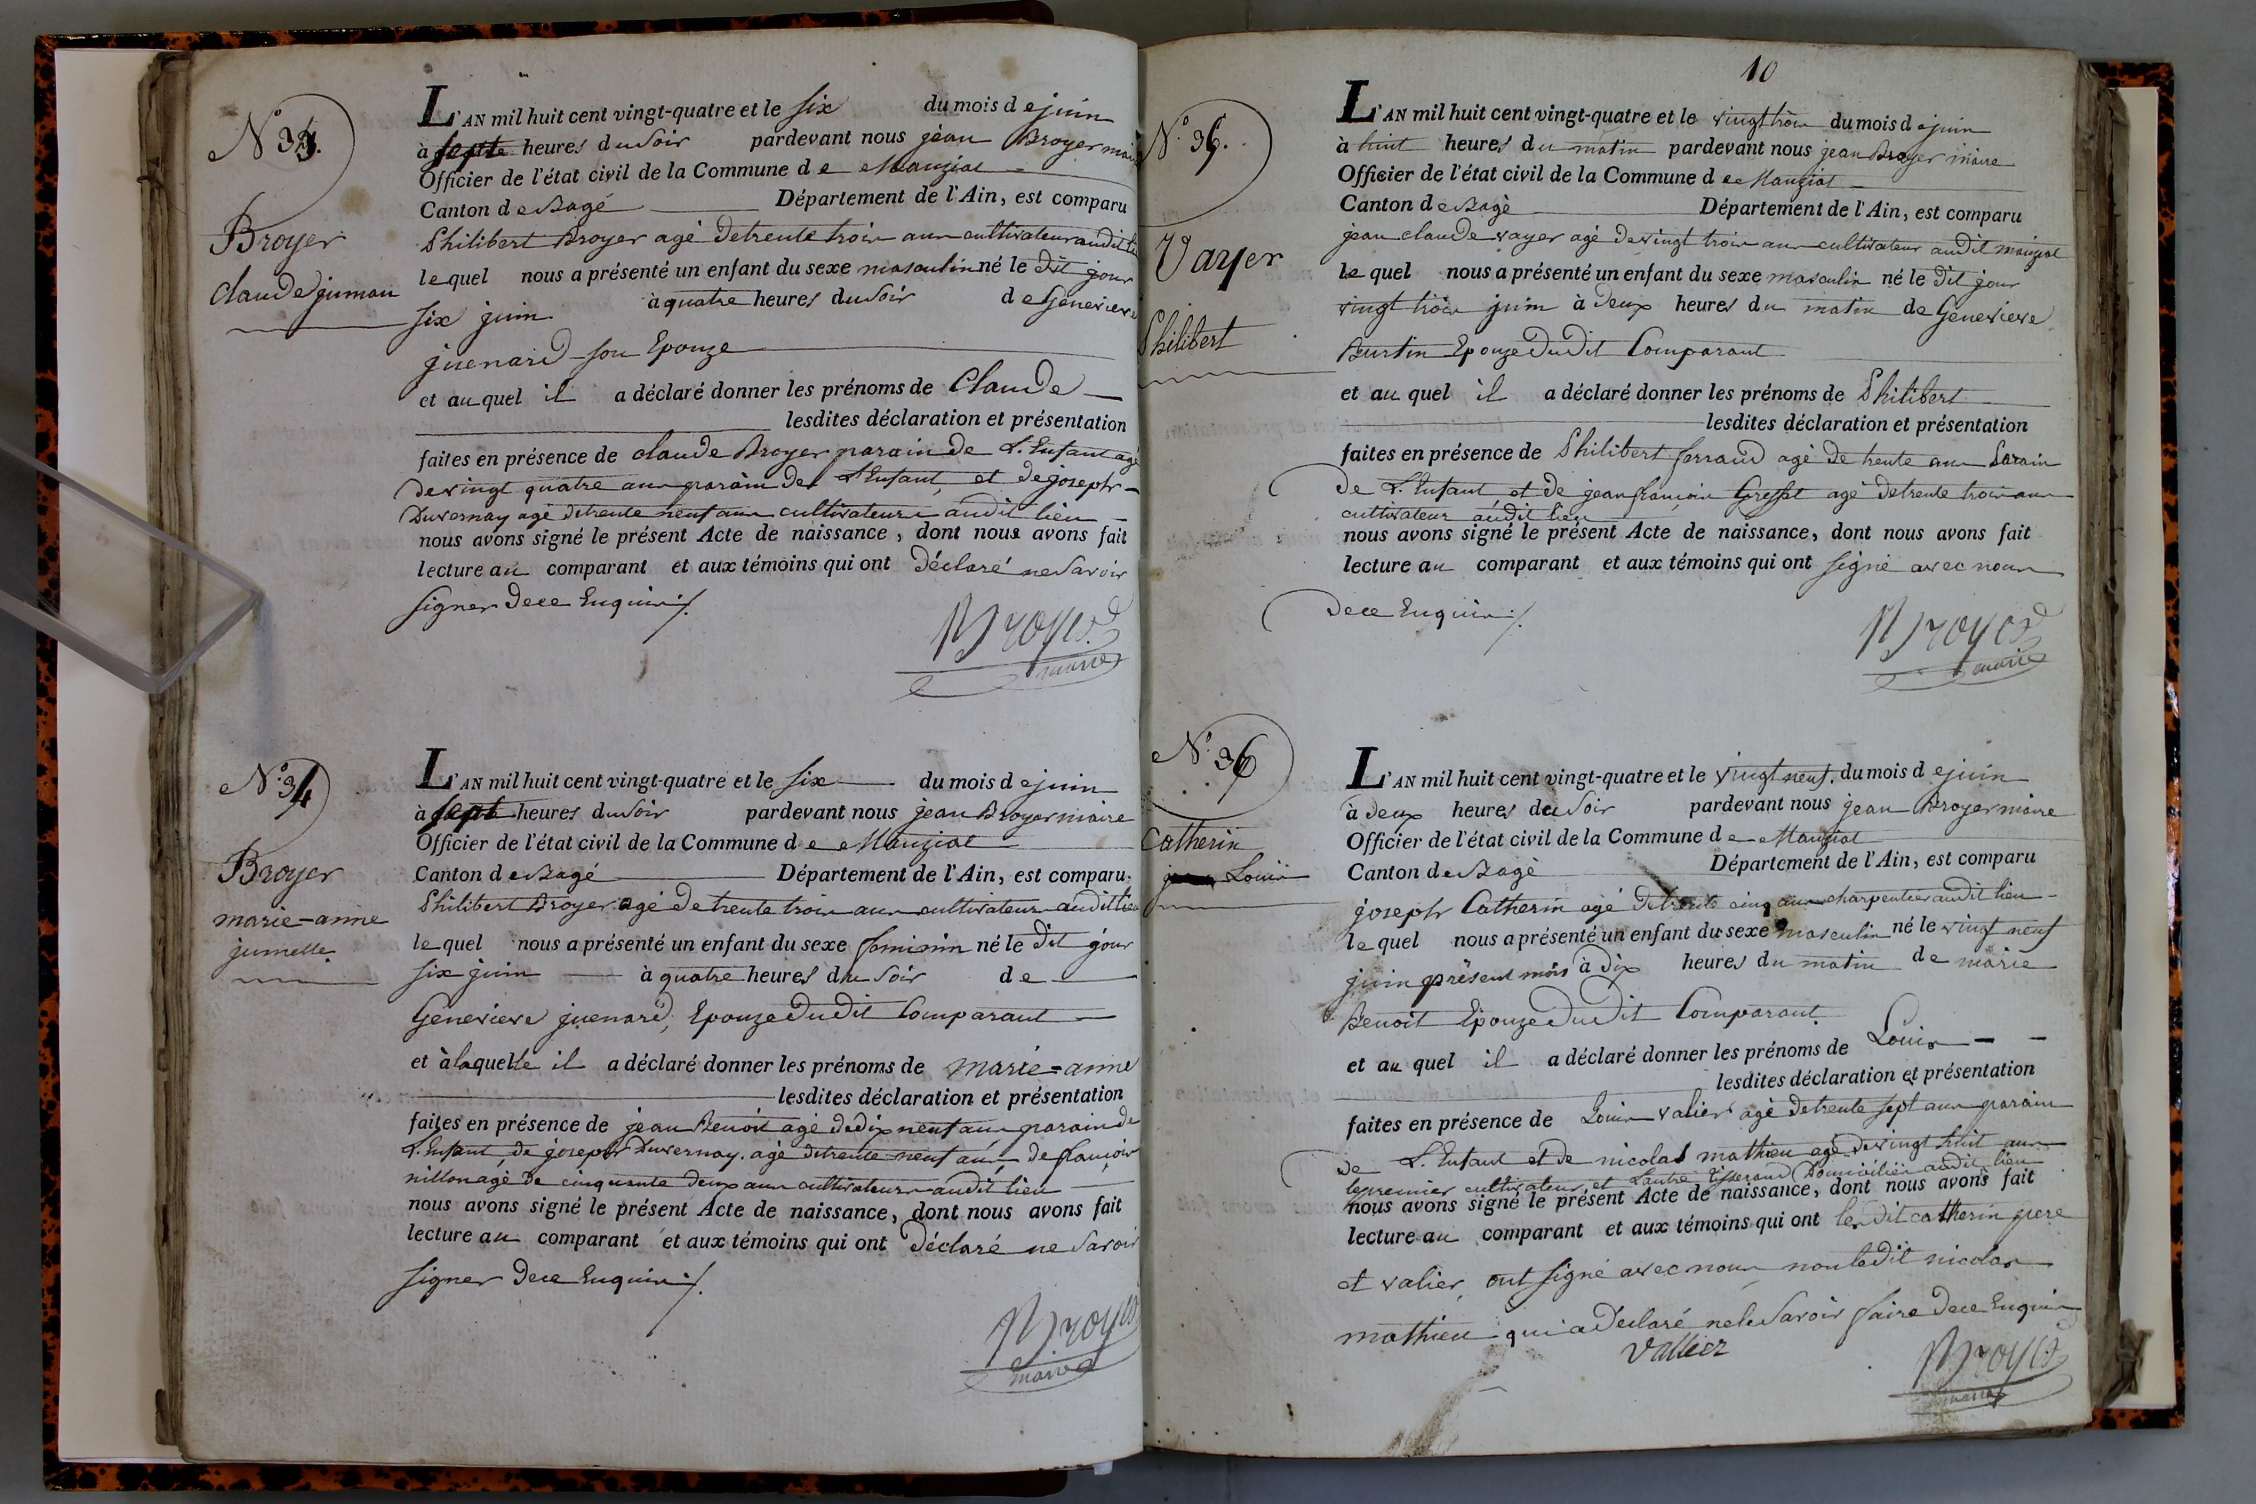 N.° 33.
Broyer
claude jumau
L'AN mil huit cent vingt-quatre et le six du mois de juin
à sept heures du soir pardevant nous jean Broyer maire
Officier de l'état civil de la Commune de Manziat
Canton de Bagé Département de l'Ain, est comparu
Philibert Broyer agé de trente trois ans cultivateur audit lieu
lequel nous a présenté un enfant du sexe masculin né le dit jour
six juin à quatre heures du soir de Genevieve
juenard son Epouze
et auquel il a déclaré donner les prénoms de Claude
lesdites déclaration et présentation
faites en présence de claude Broyer parain de L'Enfant agé
de vingt quatre ans parain de L'Enfant, et de joseph
Duvernay agé de trente neuf ans cultivateurs audit lieu
nous avons signé le présent Acte de naissance, dont nous avons fait
lecture au comparant et aux témoins qui ont déclaré ne savoir
signer de ce Enquis ./.
Broyer
maire
N.° 34
Broyer
marie-anne
jumelle
L'AN mil huit cent vingt-quatre et le six du mois de juin
à sept heures du soir pardevant nous jean Broyer maire
Officier de l'état civil de la Commune de Manziat
Canton de Bagé Département de l'Ain, est comparu
Philibert Broyer agé de trente trois ans cultivateur audit lieu
lequel nous a présenté un enfant du sexe feminin né le dit jour
six juin à quatre heures du soir de
Genevieve juenard, Epouze dudit Comparant
et à laquelle il a déclaré donner les prénoms de marie-anne
lesdites déclaration et présentation
faites en présence de jean Benoit agé de dix neuf ans parain de
L'Enfant, de joseph Duvernay agé de trente neuf ans, de françois
nillon agé de cinquante deux ans cultivateurs audit lieu
nous avons signé le présent Acte de naissance, dont nous avons fait
lecture au comparant et aux témoins qui ont déclaré ne savoir
signer de ce Enquis ./.
Broyer
maire
10
N.°
Vayer
Philibert
L'AN mil huit cent vingt-quatre et le vingt trois du mois de juin
à huit heures du matin pardevant nous jean Broyer maire
Officier de l'état civil de la Commune de Manziat
Canton de Bagé Département de l'Ain, est comparu
jean claude vayer agé de vingt trois ans cultivateur audit manziat
lequel nous a présenté un enfant du sexe masculin né le dit jour
vingt trois juin à deux heures du matin de Genevieve
Burtin Epouze dudit Comparant
et auquel il a déclaré donner les prénoms de Philibert
lesdites déclaration et présentation
faites en présence de Philibert ferraud agé de trente ans Parain
de L'Enfant, et de jean françois Greffet agé de trente trois ans
cultivateur audit lieu
nous avons signé le présent Acte de naissance, dont nous avons fait
lecture au comparant et aux témoins qui ont signé avec nous
de ce Enquis ./.
Broyer
maire
N.° 36
Catherin
Louis
L'AN mil huit cent vingt-quatre et le vingt neuf du mois de juin
à deux heures du soir pardevant nous jean Broyer maire
Officier de l'état civil de la Commune de Manziat
Canton de Bagé Département de l'Ain, est comparu
joseph Catherin agé de trente cinq ans charpentier audit lieu
lequel nous a présenté un enfant du sexe masculin né le vingt neuf
juin présent mois à dix heures du matin de marie
Benoit Epouze dudit Comparant
et auquel il a déclaré donner les prénoms de Louis
lesdites déclaration et présentation
faites en présence de Louis valier agé de trente sept ans parain
de L'Enfant et de nicolas mathieu agé de vingt huit ans
le premier cultivateur et Lautre tisserand Domiciliés audit lieu
nous avons signé le présent Acte de naissance, dont nous avons fait
lecture au comparant et aux témoins qui ont lesdit catherin pere
et valier, ont signé avec nous non ledit nicolas
mathieu qui a déclaré ne le savoir faire de ce Enquis
Vallier
Broyer
maire